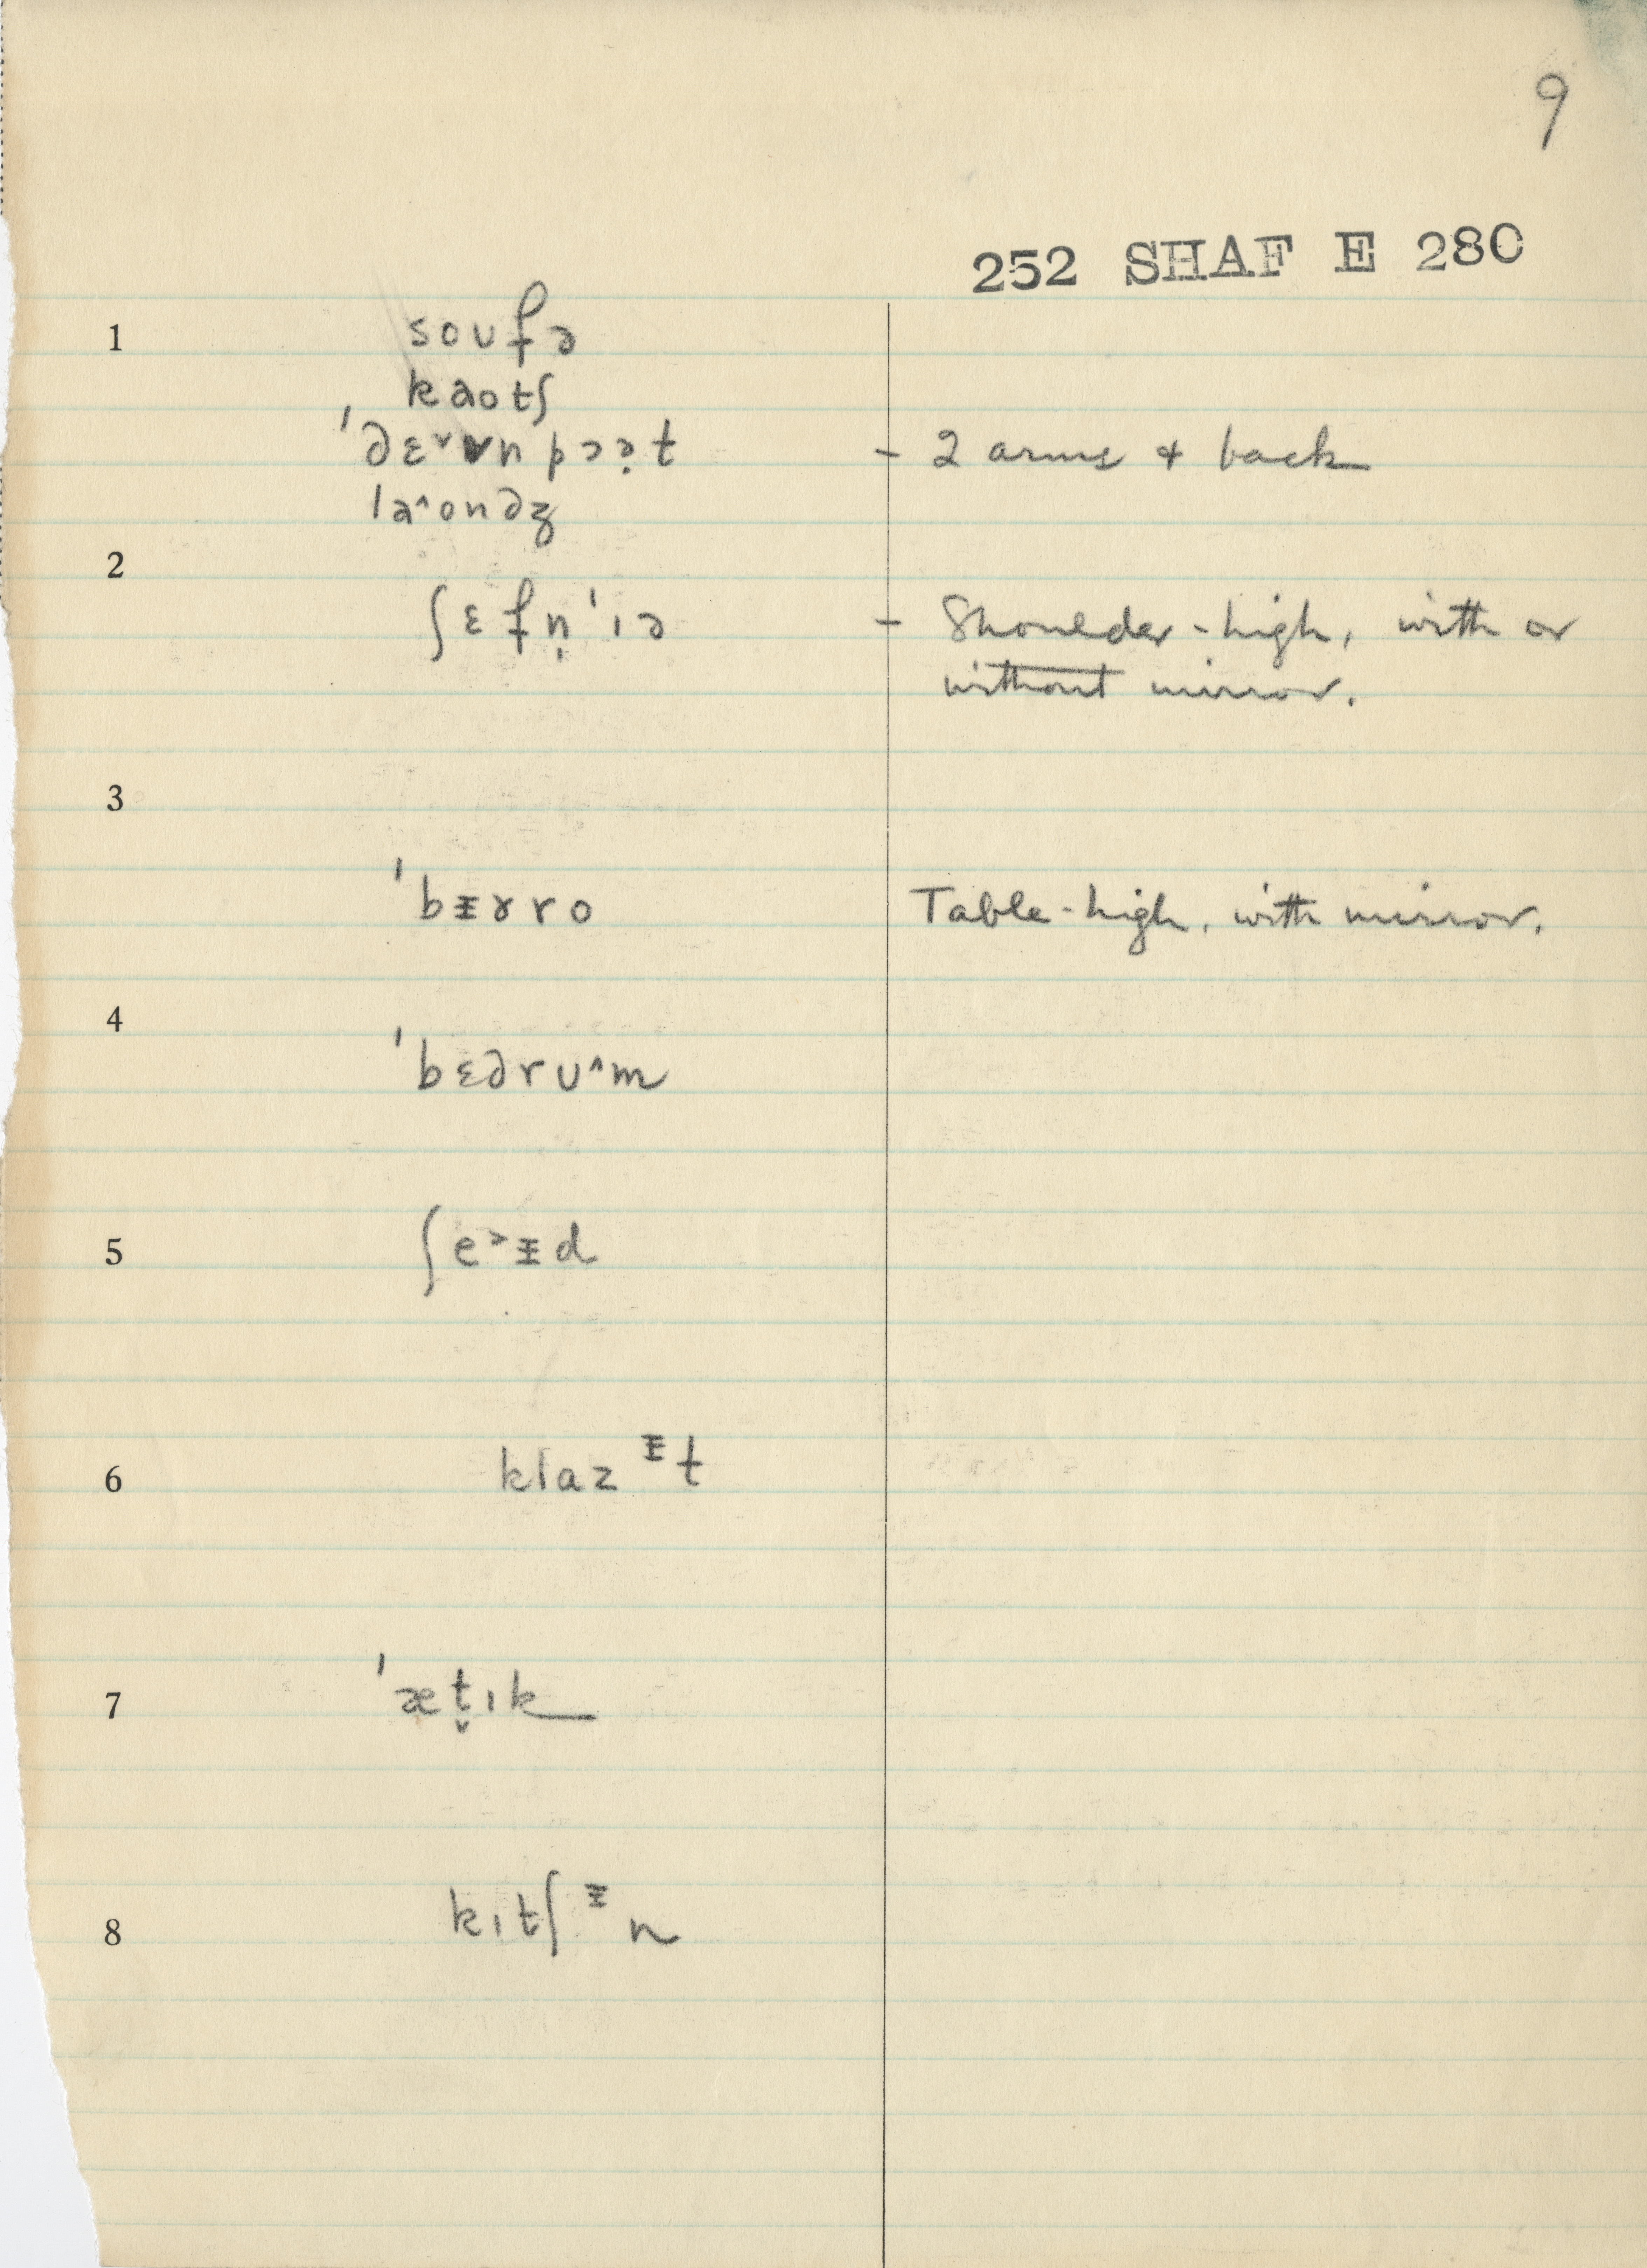 9
252 SHAF E 280
1
soʊfə
kaotʃ
ˈdɛ˅vnpɔə̣t - 2 arms & back
la^ondʒ
2
ʃɛfṇˈɪə - Shoulder-high, with or
without mirror.
3
ˈbᵻɤro Table-high, with mirror.
4
ˈbɛdrʊ^m
5
ʃe˃ᵻd
6 klazᵻt
7 ˈætɪ̬k
8 kɪtʃᵻn